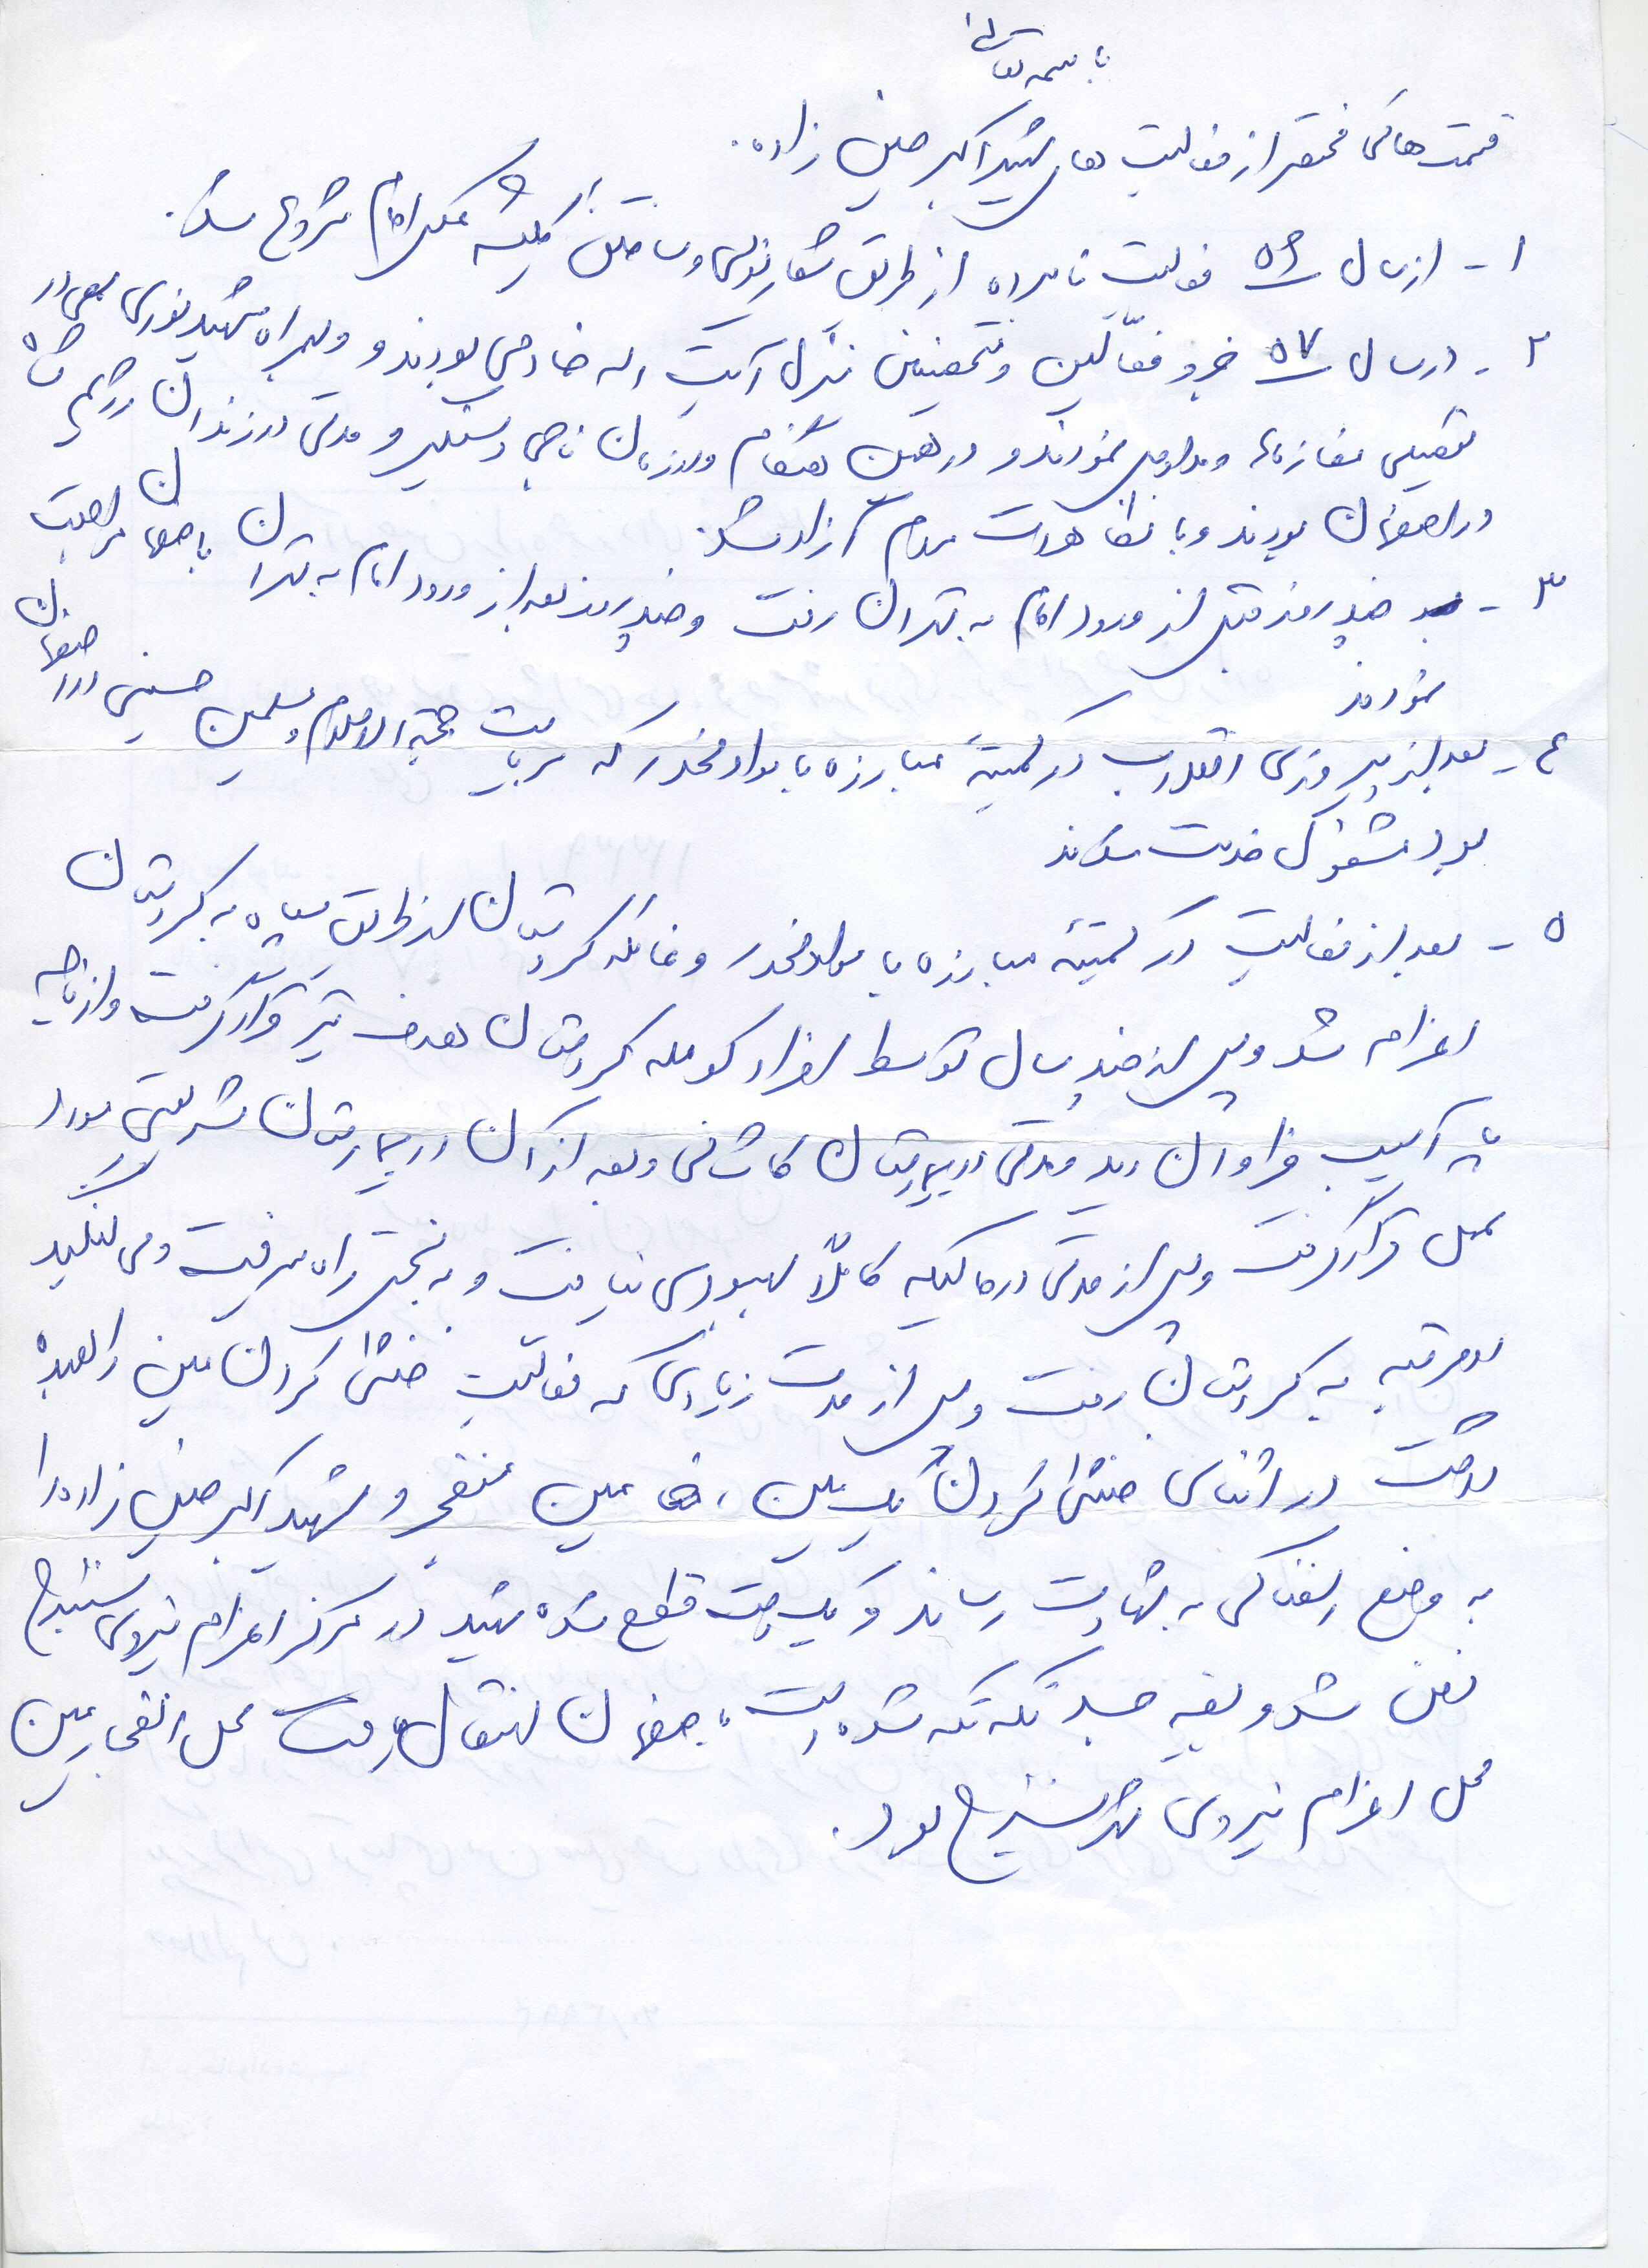 باسمه تعالی
قسمت هائی مختصر از فعالیت های شهید اکبر حسین زاده.
۱- از سال ۵۶ فعالیت نامبرده از طریق شعارنویسی و ساختن کلیشه عکس امام شروع شد.
۲- در سال ۵۷ جزو فعّالین و متحصنین منزل آیت اله خادمی بودند و همراه شهید نوری سعی در
تعطیلی مغازه ها و مدارس نمودند و در همین هنگام و در زمان ناجی دستگیر و مدتی در زندان رژیم شاه
در اصفهان بودند و با تظاهرات مردم آزاد شد.
۳- چند روز قبل از ورود امام به تهران رفت و چند روز بعد از ورود امام به تهران باصفهان مراجعت
نمودند
۴- بعد از پیروزی انقلاب در کمیتۀ مبارزه با مواد مخدر که سرپرست حجة الاسلام و مسلمین حسنی در اصفهان
بود مشغول خدمت شدند
۵- بعد از فعالیت در کمیتۀ مبارزه با مواد مخدر و غائله کردستان از طریق سپاه به کردستان
اعزام شد و پس از چند سال توسط افراد کومله کردستان هدف تیر قرار گرفت و از ناحیه
پا آسیب فراوان دید و مدتی در بیمارستان کاشانی و بعد از آن در بیمارستان شریعتی مورد
عمل قرار گرفت و پس از مدتی در حالیکه کاملاً بهبودی نیافت و به سختی راه میرفت و می لنگید
دومرتبه به کردستان رفت و پس از مدت زیادی که فعالیت خنثی کردن مین را بعهده
داشت در اثنای خنثی کردن یک مین، مین منفجر و شهید اکبر حسین زاده را
به وضع اسفناکی به شهادت رساند و یک دست قطع شده شهید در مرکز اعزام نیروی سنندج
دفن شد و بقیه جسد تکه تکه شده است باصفهان انتقال یافت محل انفجار مین
محل اعزام نیروی شهر سنندج بود.